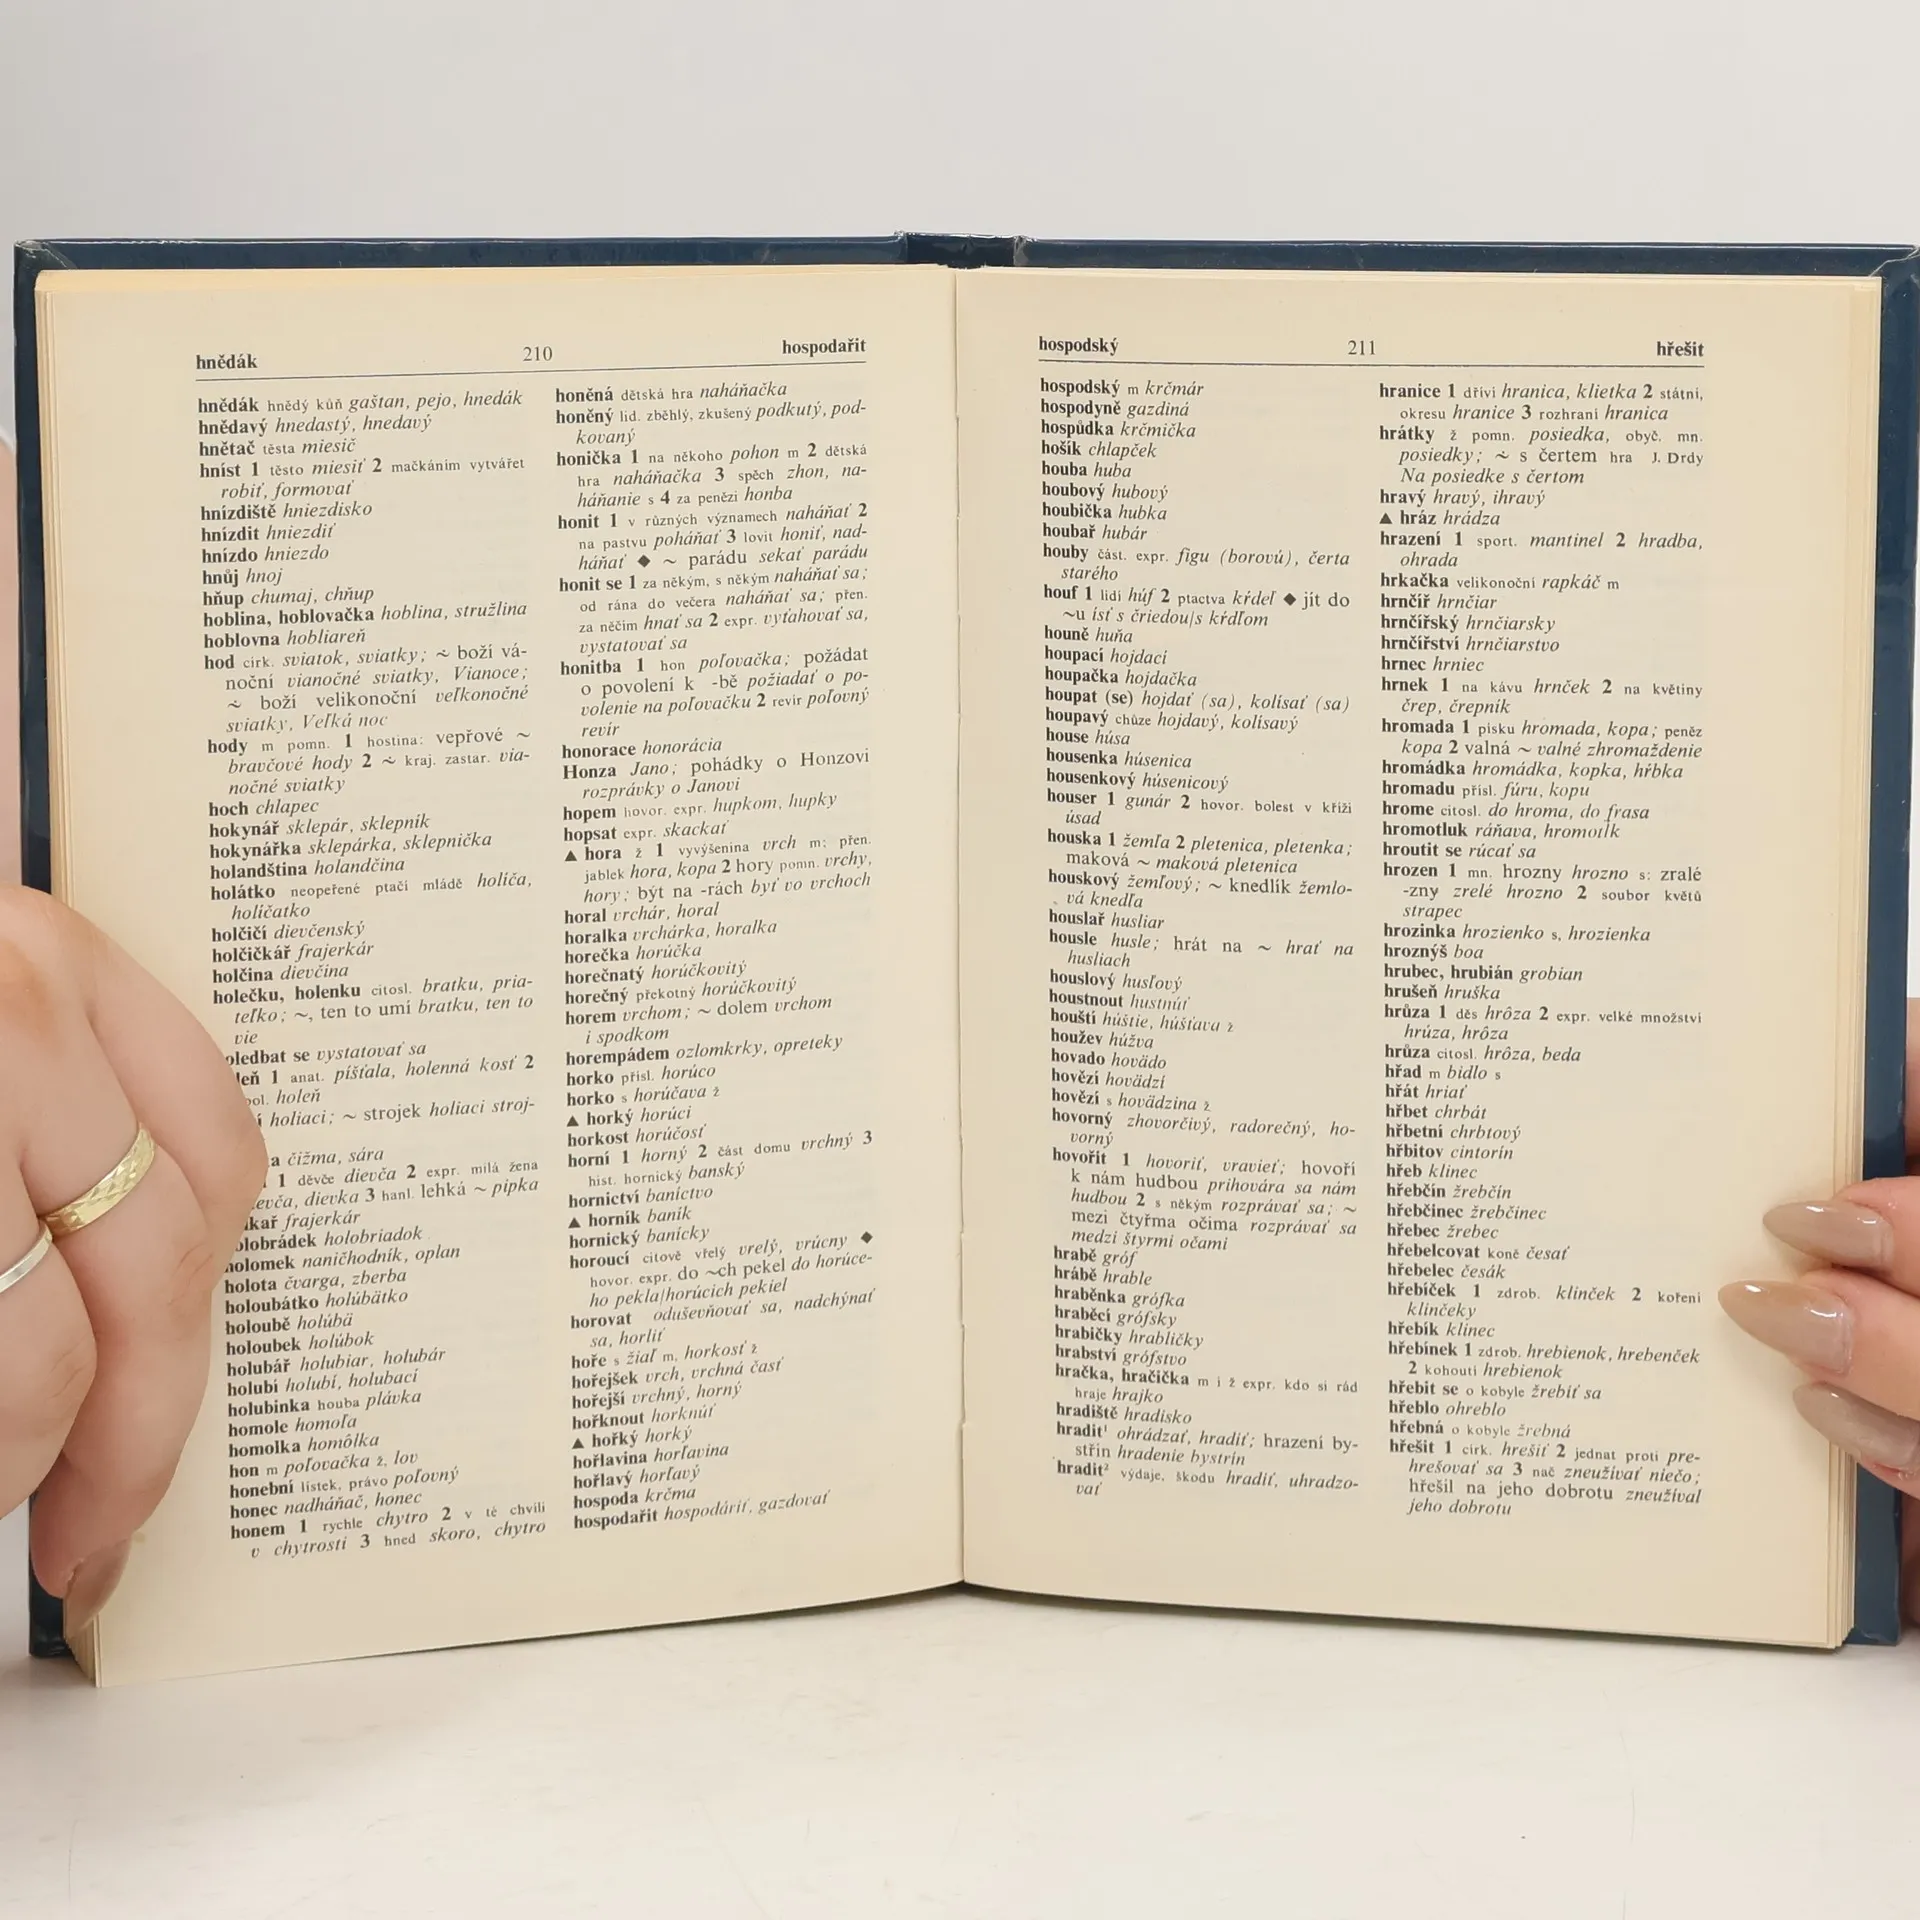 hnědák 210 hospodařit
hnědák hnědý kůň gaštan, pejo, hnedák
hnědavý hnedastý, hnedavý
hnětač těsta miesič
hníst 1 těsto miesiť 2 mačkáním vytvářet
robiť, formovať
hnízdiště hniezdisko
hnízdit hniezdiť
hnízdo hniezdo
hnůj hnoj
hňup chumaj, chňup
hoblina, hoblovačka hoblina, stružlina
hoblovna hobliareň
hod cirk. sviatok, sviatky; ~ boží vá-
noční vianočné sviatky, Vianoce;
~ boží velikonoční veľkonočné
sviatky, Veľká noc
hody m pomn. 1 hostina: vepřové ~
bravčové hody 2 ~ kraj. zastar. via-
nočné sviatky
hoch chlapec
hokynář sklepár, sklepník
hokynářka sklepárka, sklepnička
holandština holandčina
holátko neopeřené ptačí mládě holíča,
holíčatko
holčičí dievčenský
holčičkář frajerkár
holčina dievčina
holečku, holenku citosl. bratku, pria-
teľko; ~, ten to umí bratku, ten to
vie
oledbat se vystatovať sa
leň 1 anat. píšťala, holenná kosť 2
pol. holeň
í holiaci; ~ strojek holiaci stroj-
a čižma, sára
1 děvče dievča 2 expr. milá žena
evča, dievka 3 hanl. lehká ~ pipka
kař frajerkár
olobrádek holobriadok
olomek naničhodník, oplan
holota čvarga, zberba
holoubátko holúbätko
holoubě holúbä
holoubek holúbok
holubář holubiar, holubár
holubí holubí, holubací
holubinka houba plávka
homole homoľa
homolka homôlka
hon m poľovačka ž, lov
honební lístek, právo poľovný
honec nadháňač, honec
honem 1 rychle chytro 2 v té chvíli
v chytrosti 3 hned skoro, chytro
honěná dětská hra naháňačka
honěný lid. zběhlý, zkušený podkutý, pod-
kovaný
honička 1 na někoho pohon m 2 dětská
hra naháňačka 3 spěch zhon, na-
háňanie s 4 za penězi honba
honit 1 v různých významech naháňať 2
na pastvu poháňať 3 lovit honiť, nad-
háňať ◆ ~ parádu sekať parádu
honit se 1 za někým, s někým naháňať sa;
od rána do večera naháňať sa; přen.
za něčím hnať sa 2 expr. vyťahovať sa,
vystatovať sa
honitba 1 hon poľovačka; požádat
o povolení k -bě požiadať o po-
volenie na poľovačku 2 revír poľovný
revír
honorace honorácia
Honza Jano; pohádky o Honzovi
rozprávky o Janovi
hopem hovor. expr. hupkom, hupky
hopsat expr. skackať
▲ hora ž 1 vyvýšenina vrch m; přen.
jablek hora, kopa 2 hory pomn. vrchy,
hory; být na -rách byť vo vrchoch
horal vrchár, horal
horalka vrchárka, horalka
horečka horúčka
horečnatý horúčkovitý
horečný překotný horúčkovitý
horem vrchom; ~ dolem vrchom
i spodkom
horempádem ozlomkrky, opreteky
horko přísl. horúco
horko s horúčava ž
▲ horký horúci
horkost horúčosť
horní 1 horný 2 část domu vrchný 3
hist. hornický banský
hornictví baníctvo
▲ horník baník
hornický banícky
horoucí citově vřelý vrelý, vrúcny ◆
hovor. expr. do ~ch pekel do horúce-
ho pekla/horúcich pekiel
horovat oduševňovať sa, nadchýnať
sa, horliť
hoře s žiaľ m, horkosť ž
hořejšek vrch, vrchná časť
hořejší vrchný, horný
hořknout horknúť
▲ hořký horký
hořlavina horľavina
hořlavý horľavý
hospoda krčma
hospodařit hospodáriť, gazdovať
hospodský 211 hřešit
hospodský m krčmár
hospodyně gazdiná
hospůdka krčmička
hošík chlapček
houba huba
houbový hubový
houbička hubka
houbař hubár
houby část. expr. figu (borovú), čerta
starého
houf 1 lidí húf 2 ptactva kŕdeľ ◆ jít do
~u ísť s čriedou/s kŕdľom
houně huňa
houpací hojdací
houpačka hojdačka
houpat (se) hojdať (sa), kolísať (sa)
houpavý chůze hojdavý, kolísavý
house húsa
housenka húsenica
housenkový húsenicový
houser 1 gunár 2 hovor. bolest v kříži
úsad
houska 1 žemľa 2 pletenica, pletenka;
maková ~ maková pletenica
houskový žemľový; ~ knedlík žemlo-
vá knedľa
houslař husliar
housle husle; hrát na ~ hrať na
husliach
houslový husľový
houstnout hustnúť
houští húštie, húšťava ž
houžev húžva
hovado hovädo
hovězí hovädzí
hovězí s hovädzina ž
hovorný zhovorčivý, radorečný, ho-
vorný
hovořit 1 hovoriť, vravieť; hovoří
k nám hudbou prihovára sa nám
hudbou 2 s někým rozprávať sa; ~
mezi čtyřma očima rozprávať sa
medzi štyrmi očami
hrabě gróf
hrábě hrable
hraběnka grófka
hraběcí grófsky
hrabičky hrabličky
hrabství grófstvo
hračka, hračička m i ž expr. kdo si rád
hraje hrajko
hradiště hradisko
hradit¹ ohrádzať, hradiť; hrazení by-
střin hradenie bystrín
hradit² výdaje, škodu hradiť, uhradzo-
vať
hranice 1 dříví hranica, klietka 2 státní,
okresu hranice 3 rozhraní hranica
hrátky ž pomn. posiedka, obyč. mn.
posiedky; ~ s čertem hra J. Drdy
Na posiedke s čertom
hravý hravý, ihravý
▲ hráz hrádza
hrazení 1 sport. mantinel 2 hradba,
ohrada
hrkačka velikonoční rapkáč m
hrnčíř hrnčiar
hrnčířský hrnčiarsky
hrnčířství hrnčiarstvo
hrnec hrniec
hrnek 1 na kávu hrnček 2 na květiny
črep, črepník
hromada 1 písku hromada, kopa; peněz
kopa 2 valná ~ valné zhromaždenie
hromádka hromádka, kopka, hŕbka
hromadu přísl. fúru, kopu
hrome citosl. do hroma, do frasa
hromotluk ráňava, hromotĺk
hroutit se rúcať sa
hrozen 1 mn. hrozny hrozno s: zralé
-zny zrelé hrozno 2 soubor květů
strapec
hrozinka hrozienko s, hrozienka
hroznýš boa
hrubec, hrubián grobian
hrušeň hruška
hrůza 1 děs hrôza 2 expr. velké množství
hrúza, hrôza
hrůza citosl. hrôza, beda
hřad m bidlo s
hřát hriať
hřbet chrbát
hřbetní chrbtový
hřbitov cintorín
hřeb klinec
hřebčín žrebčín
hřebčinec žrebčinec
hřebec žrebec
hřebelcovat koně česať
hřebelec česák
hřebíček 1 zdrob. klinček 2 koření
klinčeky
hřebík klinec
hřebínek 1 zdrob. hrebienok, hrebenček
2 kohoutí hrebienok
hřebit se o kobyle žrebiť sa
hřeblo ohreblo
hřebná o kobyle žrebná
hřešit 1 cirk. hrešiť 2 jednat proti pre-
hrešovať sa 3 nač zneužívať niečo;
hřešil na jeho dobrotu zneužíval
jeho dobrotu